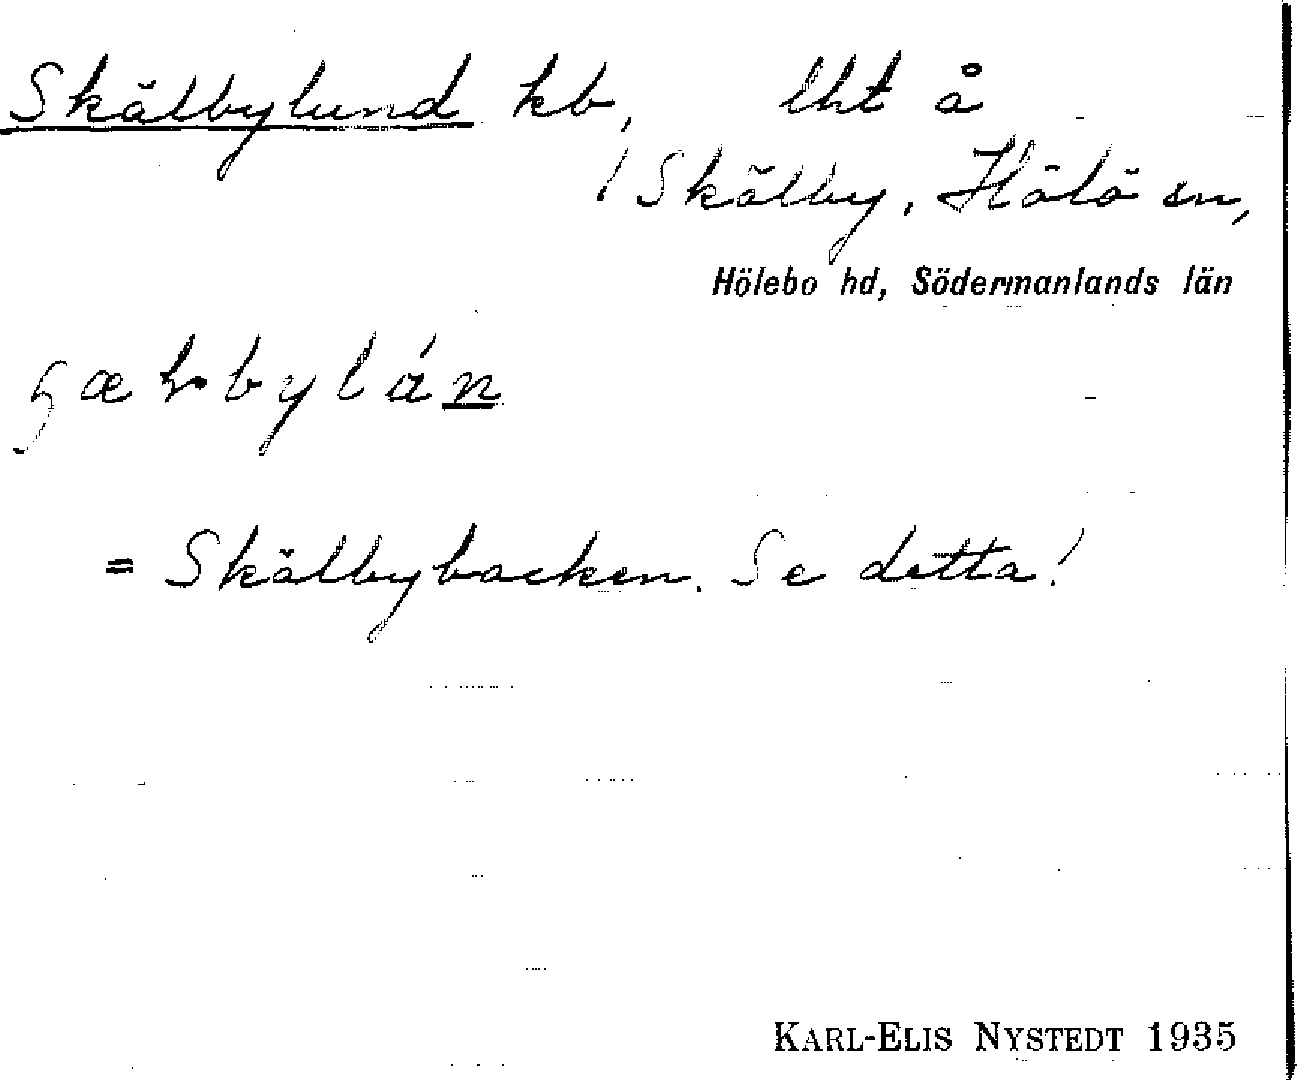 Skälbylund kb, lht å
/ Skälby, Hölö sn,
Hölebo hd, Södermanlands län
= Skälbybacken. Se detta!
KARL-ELIS NYSTEDT 1935